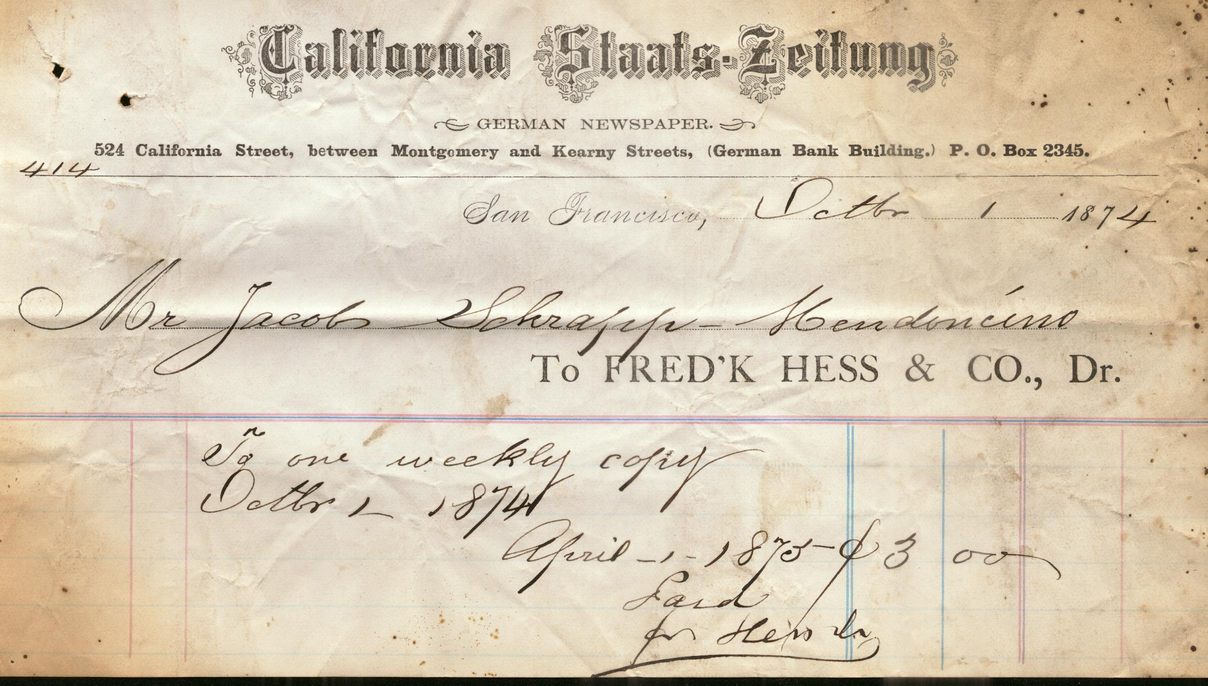 California Staats-Zeitung
GERMAN NEWSPAPER.
524 California Street, between Montgomery and Kearny Streets, (German Bank Building.) P. O. Box 2345.
414
San Francisco, Octbr 1 1874
Mr Jacob Schrapp - Mendoncino
To FRED'K HESS & CO., Dr.
To one weekly copy
Octbr 1 - 1874
April - 1 - 1875 - $ 3 00
Paid